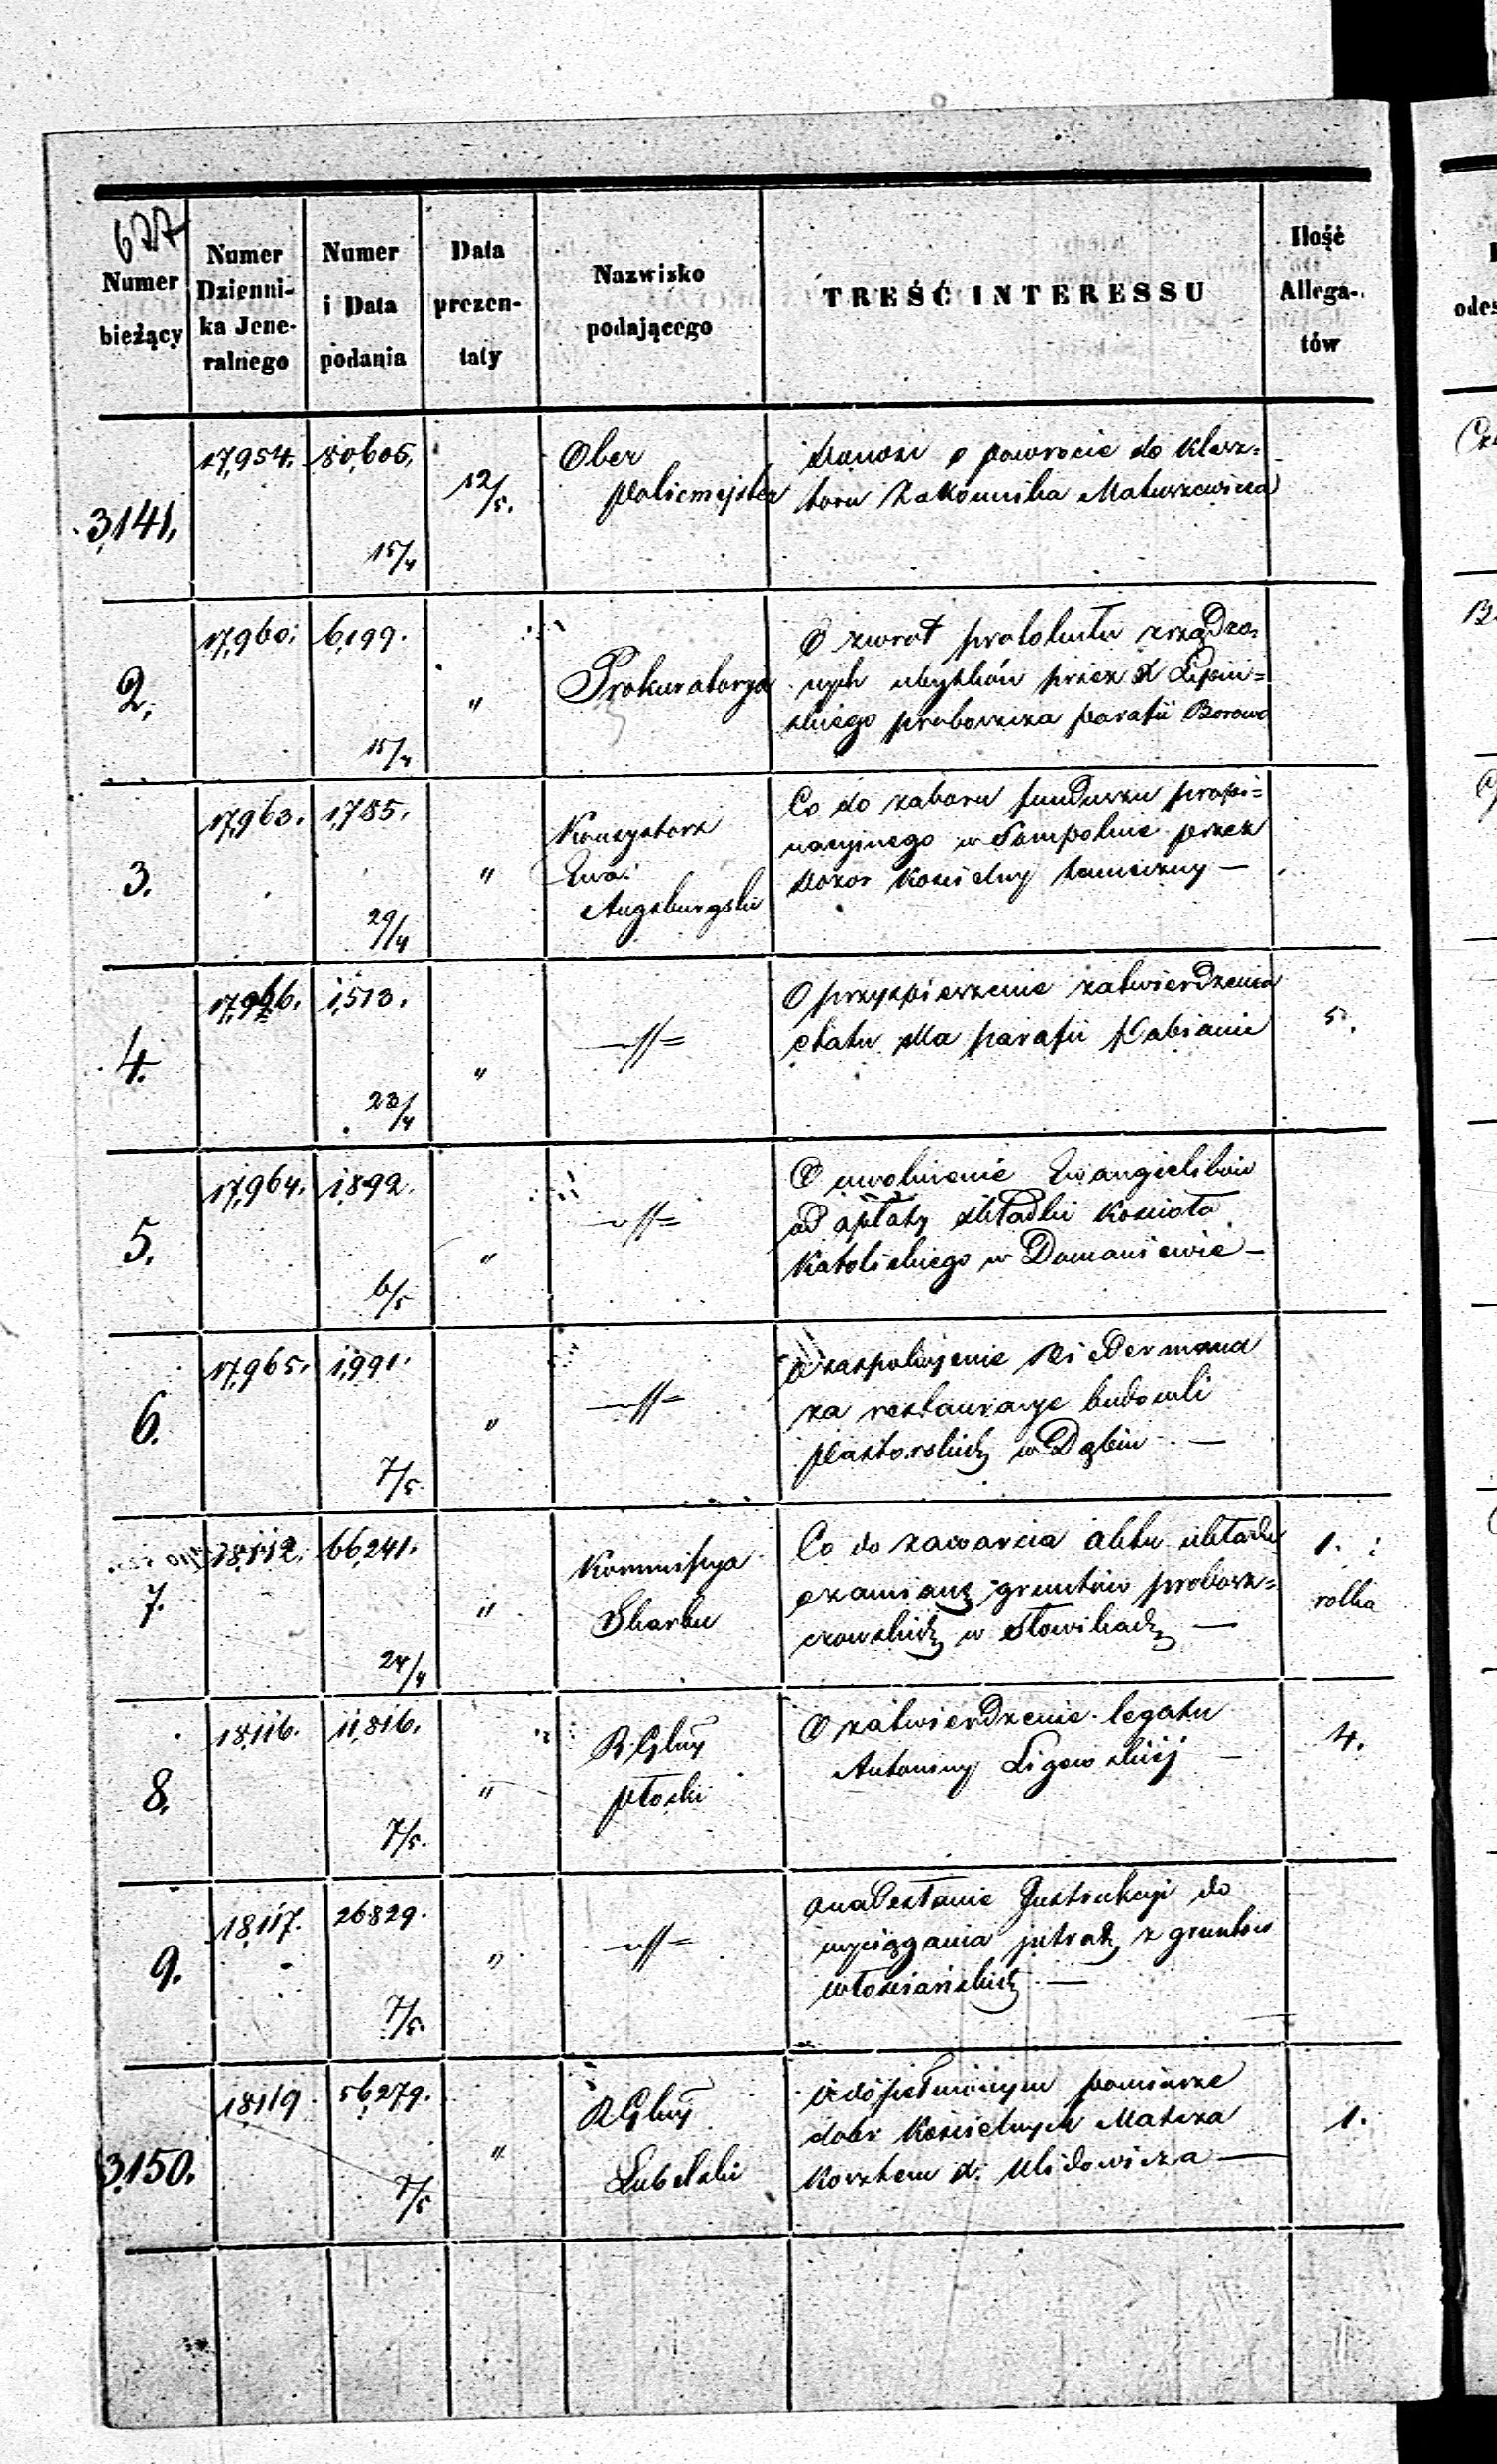 677
Numer
bieżący
Numer
Dzienni-
ka Jene-
ralnego
Numer
i Data
podania
Data
prezen-
taty
Nazwisko
podającego
TREŚĆ INTERESSU
Ilość
Allega-
tów
3,141.
17,954.
80,605.
15/4
12/5.
Ober
Policmejster
Donosi o powrocie do klasz=
toru Zakonnika Matuszewicza
2.
17,960.
6,199.
15/4
"
Prokuratorya
O zwrot protokułu zrządzo,
nych ubytków przez X Lipiń=
skiego proboszcza parafii Borowo
3.
17,963.
1,785.
29/4
"
Konsystorz
Ewa:
Augsburgski
Co do zaboru funduszu propi=
nacyjnego w Sompolnie przez
Dozór Kościelny tameczny —
4.
1,513.
23/4
"
—//=
O przyspieszenie zatwierdzenia
etatu dla parafii Pabianic
5.
5.
17,964.
1,892.
6/5
"
—//=
O uwolnienie Ewangielików
od opłaty składki Kościoła
Katolickiego w Domaniewie —
6.
17,965.
1,991.
7/5.
"
—//=
O zaspokojenie Bidermana
za restauracye budowli
Pastorskich w Dąbiu —
7.
18,112.
66,241.
24/4
"
Kommissya
Skarbu
Co do zawarcia aktu układu
o zamianę gruntów probosz=
czowskich w Słowikach —
1. i
rolka
8.
18,116.
11,816.
7/5.
"
R. Glny
Płocki
O zatwierdzenie legatu
Antoniny Ligowskiéj —
4.
9.
18,117.
26829.
7/5.
"
—//=
O nadesłanie Instrukcyi do
wyciągania z gruntów
włościańskich —
3,150.
18119
56,279.
7/5
"
R Glny
Lubelski
O dopełnionym pomiarze
dobr Kościelnych Matcza
Kosztem X. Ulidowicza —
1.